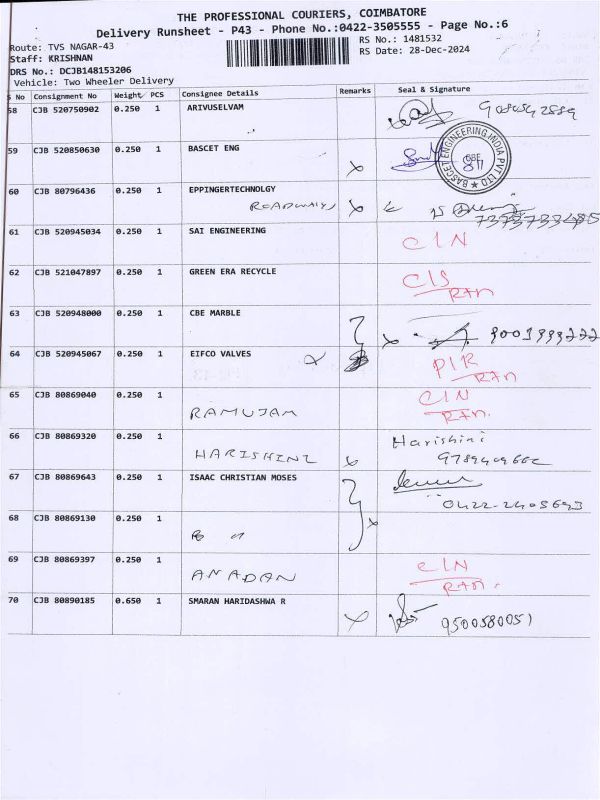 THE PROFESSIONAL COURIERS, COIMBATORE
Delivery Runsheet - P43 - Phone No.:0422-3505555 - Page No.:6
Route: TVS NAGAR-43
RS No.: 1481532
Staff: KRISHNAN
RS Date: 28-Dec-2024
DRS No.: DCJB148153206
Vehicle: Two Wheeler Delivery
S No Consignment No Weight/ PCS Consignee Details Remarks Seal & Signature
58 CJB 520750902 0.250 1 ARIVUSELVAM
59 CJB 520850630 0.250 1 BASCET ENG
BASCET ENGINEERING INDIA PVT LTD
CBE
60 CJB 80796436 0.250 1 EPPINGERTECHNOLGY
ROADWAYS
61 CJB 520945034 0.250 1 SAI ENGINEERING
CIN
62 CJB 521047897 0.250 1 GREEN ERA RECYCLE
CIS
RAM
63 CJB 520948000 0.250 1 CBE MARBLE
64 CJB 520945067 0.250 1 EIFCO VALVES
PIR
RAM
65 CJB 80869040 0.250 1
RAMUJAM
CIN
RAM.
66 CJB 80869320 0.250 1
HARISHINI
Harishini
67 CJB 80869643 0.250 1 ISAAC CHRISTIAN MOSES
0422-2405693
68 CJB 80869130 0.250 1
69 CJB 80869397 0.250 1
ANADAN
CIN
RAM.
70 CJB 80890185 0.650 1 SMARAN HARIDASHWA R
9500580051